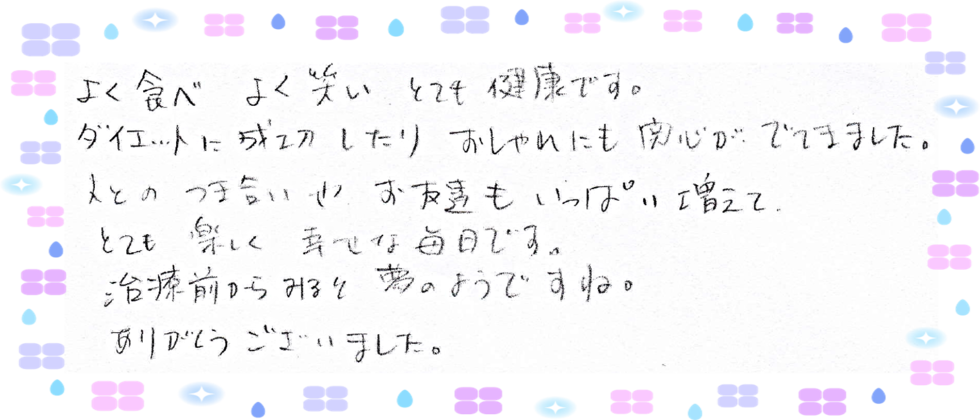 よく食べ よく笑い とても健康です。
ダイエットに成功したり おしゃれにも関心がでてきました。
人とのつき合いや お友達もいっぱい増えて、
とても楽しく 幸せな毎日です。
治療前からみると 夢のようですね。
ありがとうございました。